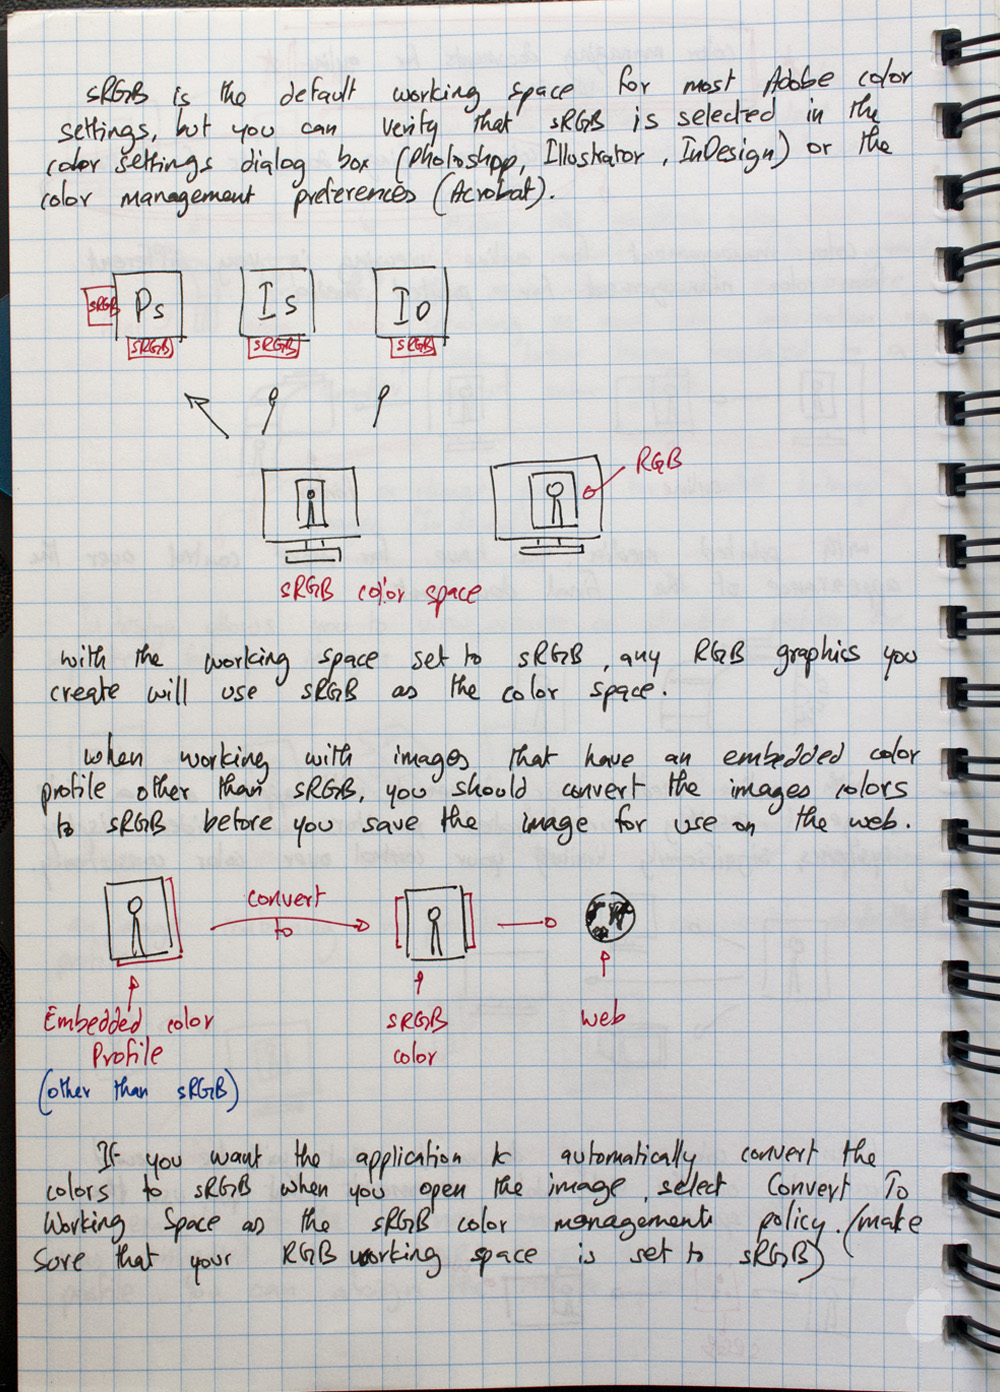 sRGB is the default working space for most Adobe color
settings, but you can verify that sRGB is selected in the
color settings dialog box (Photoshop, Illustrator, InDesign) or the
color management preferences (Acrobat).
sRGB Ps Is Io
sRGB sRGB sRGB
RGB
sRGB color space
with the working space set to sRGB, any RGB graphics you
create will use sRGB as the color space.
when working with images that have an embedded color
profile other than sRGB, you should convert the images colors
to sRGB before you save the image for use on the web.
convert
to
Embedded color sRGB web
Profile color
(other than sRGB)
If you want the application to automatically convert the
colors to sRGB when you open the image, select Convert To
Working Space as the sRGB color management policy. (make
sure that your RGB working space is set to sRGB)